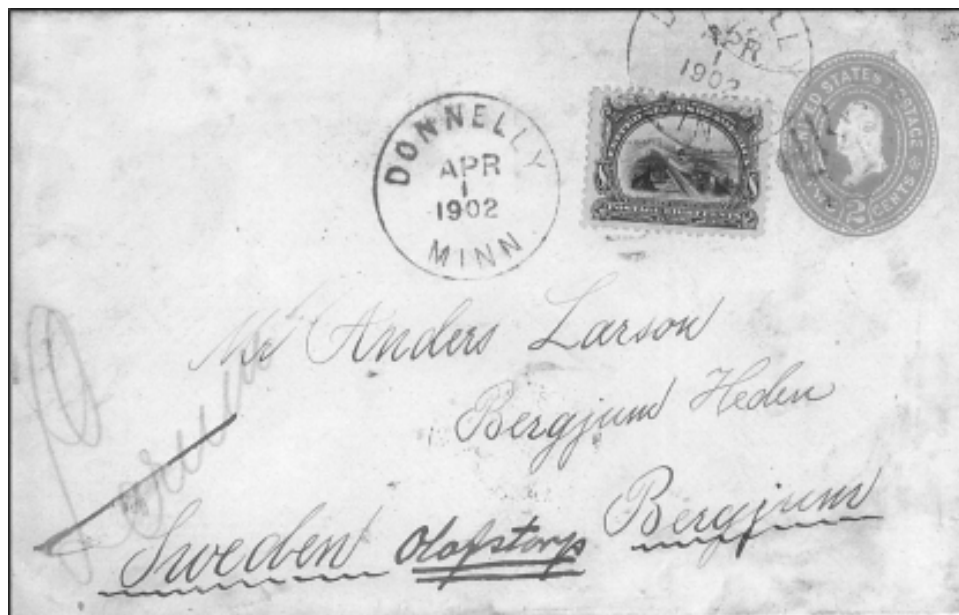 DONNELLY
APR
1
1902
MINN
APR
1
1902
UNITED STATES POSTAGE
2
CENTS
Mr Anders Larson
Bergjum Heden
Sweden Olofstorp Bergjum